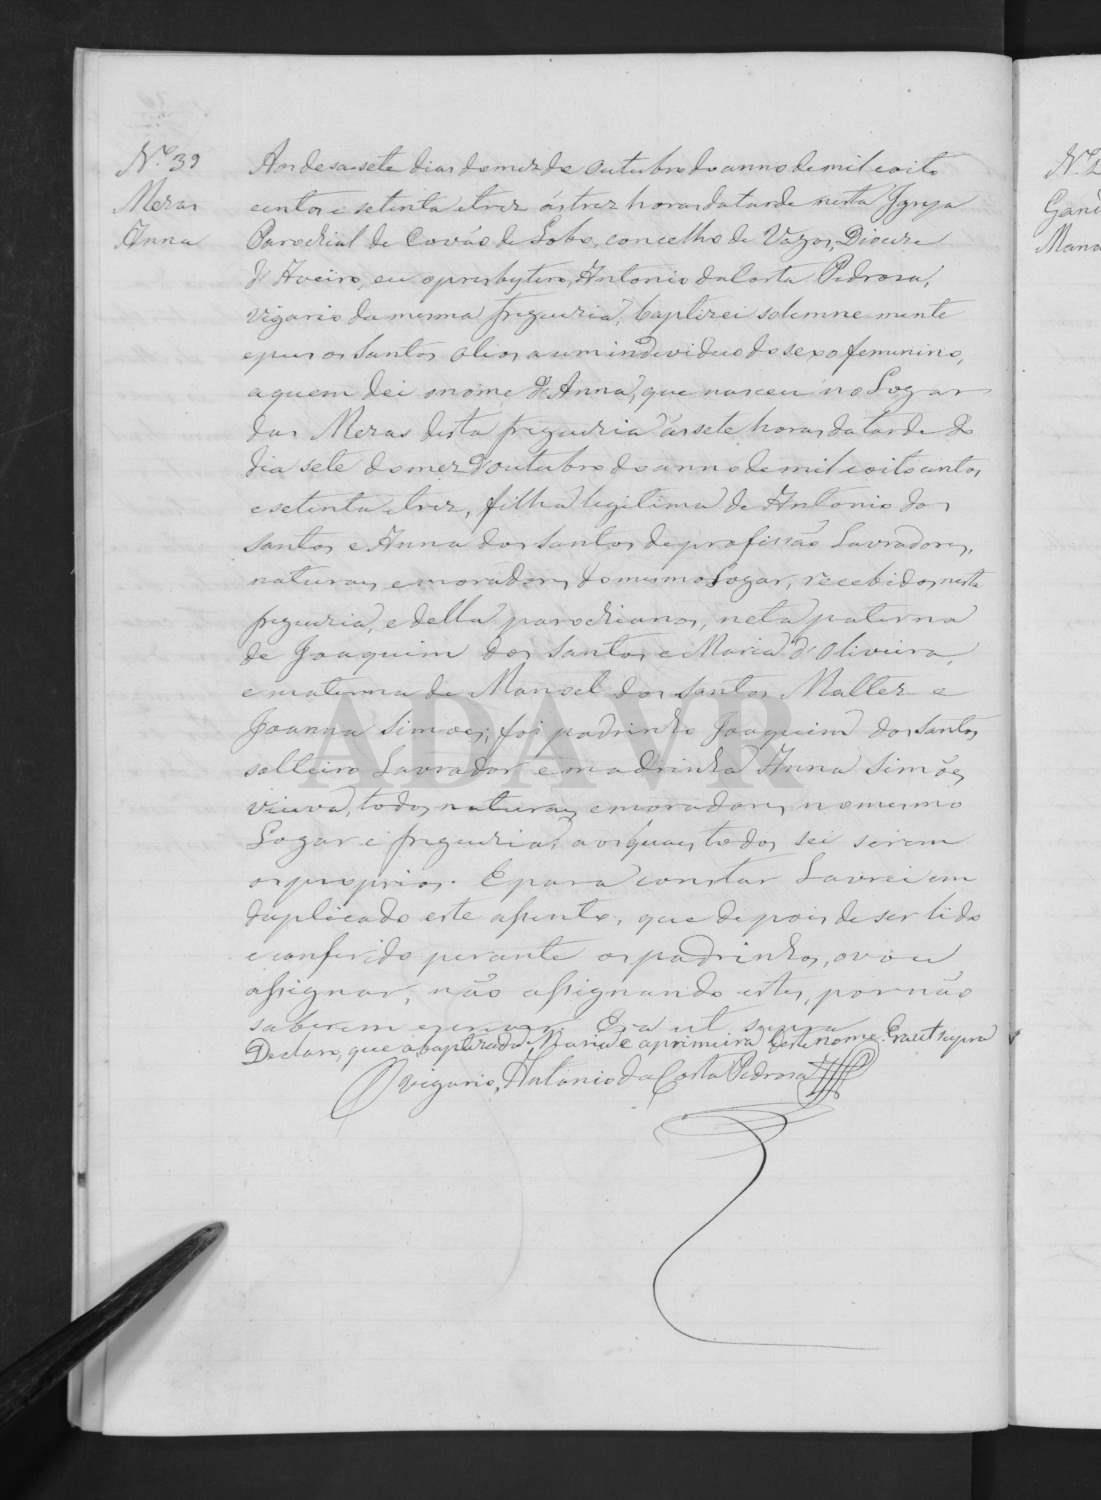 Nº 39
Mezas
Anna
Aos desasete dias do mez de outubro do anno de mil e oito
centos e setenta e trez ás trez horas da tarde nesta Igreja
Parochial de Covão de Lobo, concelho de Vagos, Diocese
d'Aveiro, eu o presbytero, Antonio da Costa Pedrosa,
vigario da mesma freguezia, baptizei solemne mente
e puz os Santos Olios a um individuo do sexo femenino,
a quem dei o nome d'Anna, que nasceu no Logar
das Mezas desta freguezia ás sete horas da tarde do
dia sete do mez d'outubro do anno de mil e oito centos
e setenta e trez, filha legitima de Antonio dos
Santos e Anna dos Santos de profissão Lavradores,
naturaes e moradores do mesmo Logar, recebidos nesta
freguezia, e della parochianos, neta paterna
de Joaquim dos Santos e Maria d'Oliveira,
e materna de Manoel dos Santos Mallez e
Joanna Simoes; foi padrinho Joaquim dos Santos
solteiro Lavrador e madrinha Anna Simões
viuva, todos naturaes e moradores no mesmo
Logar e freguezia, aos quaes todos sei serem
os proprios. E para constar Lavrei em
duplicado este assento, que depois de ser lido
e conferido perante os padrinhos, o vou
assignar, não assignando estes, por não
saberem escrever. Era ut supra
Declaro, que a baptizada, Maria é a primeira deste nome. Era ut supra
O vigario, Antonio da Costa Pedrosa
Nº
ADAVR